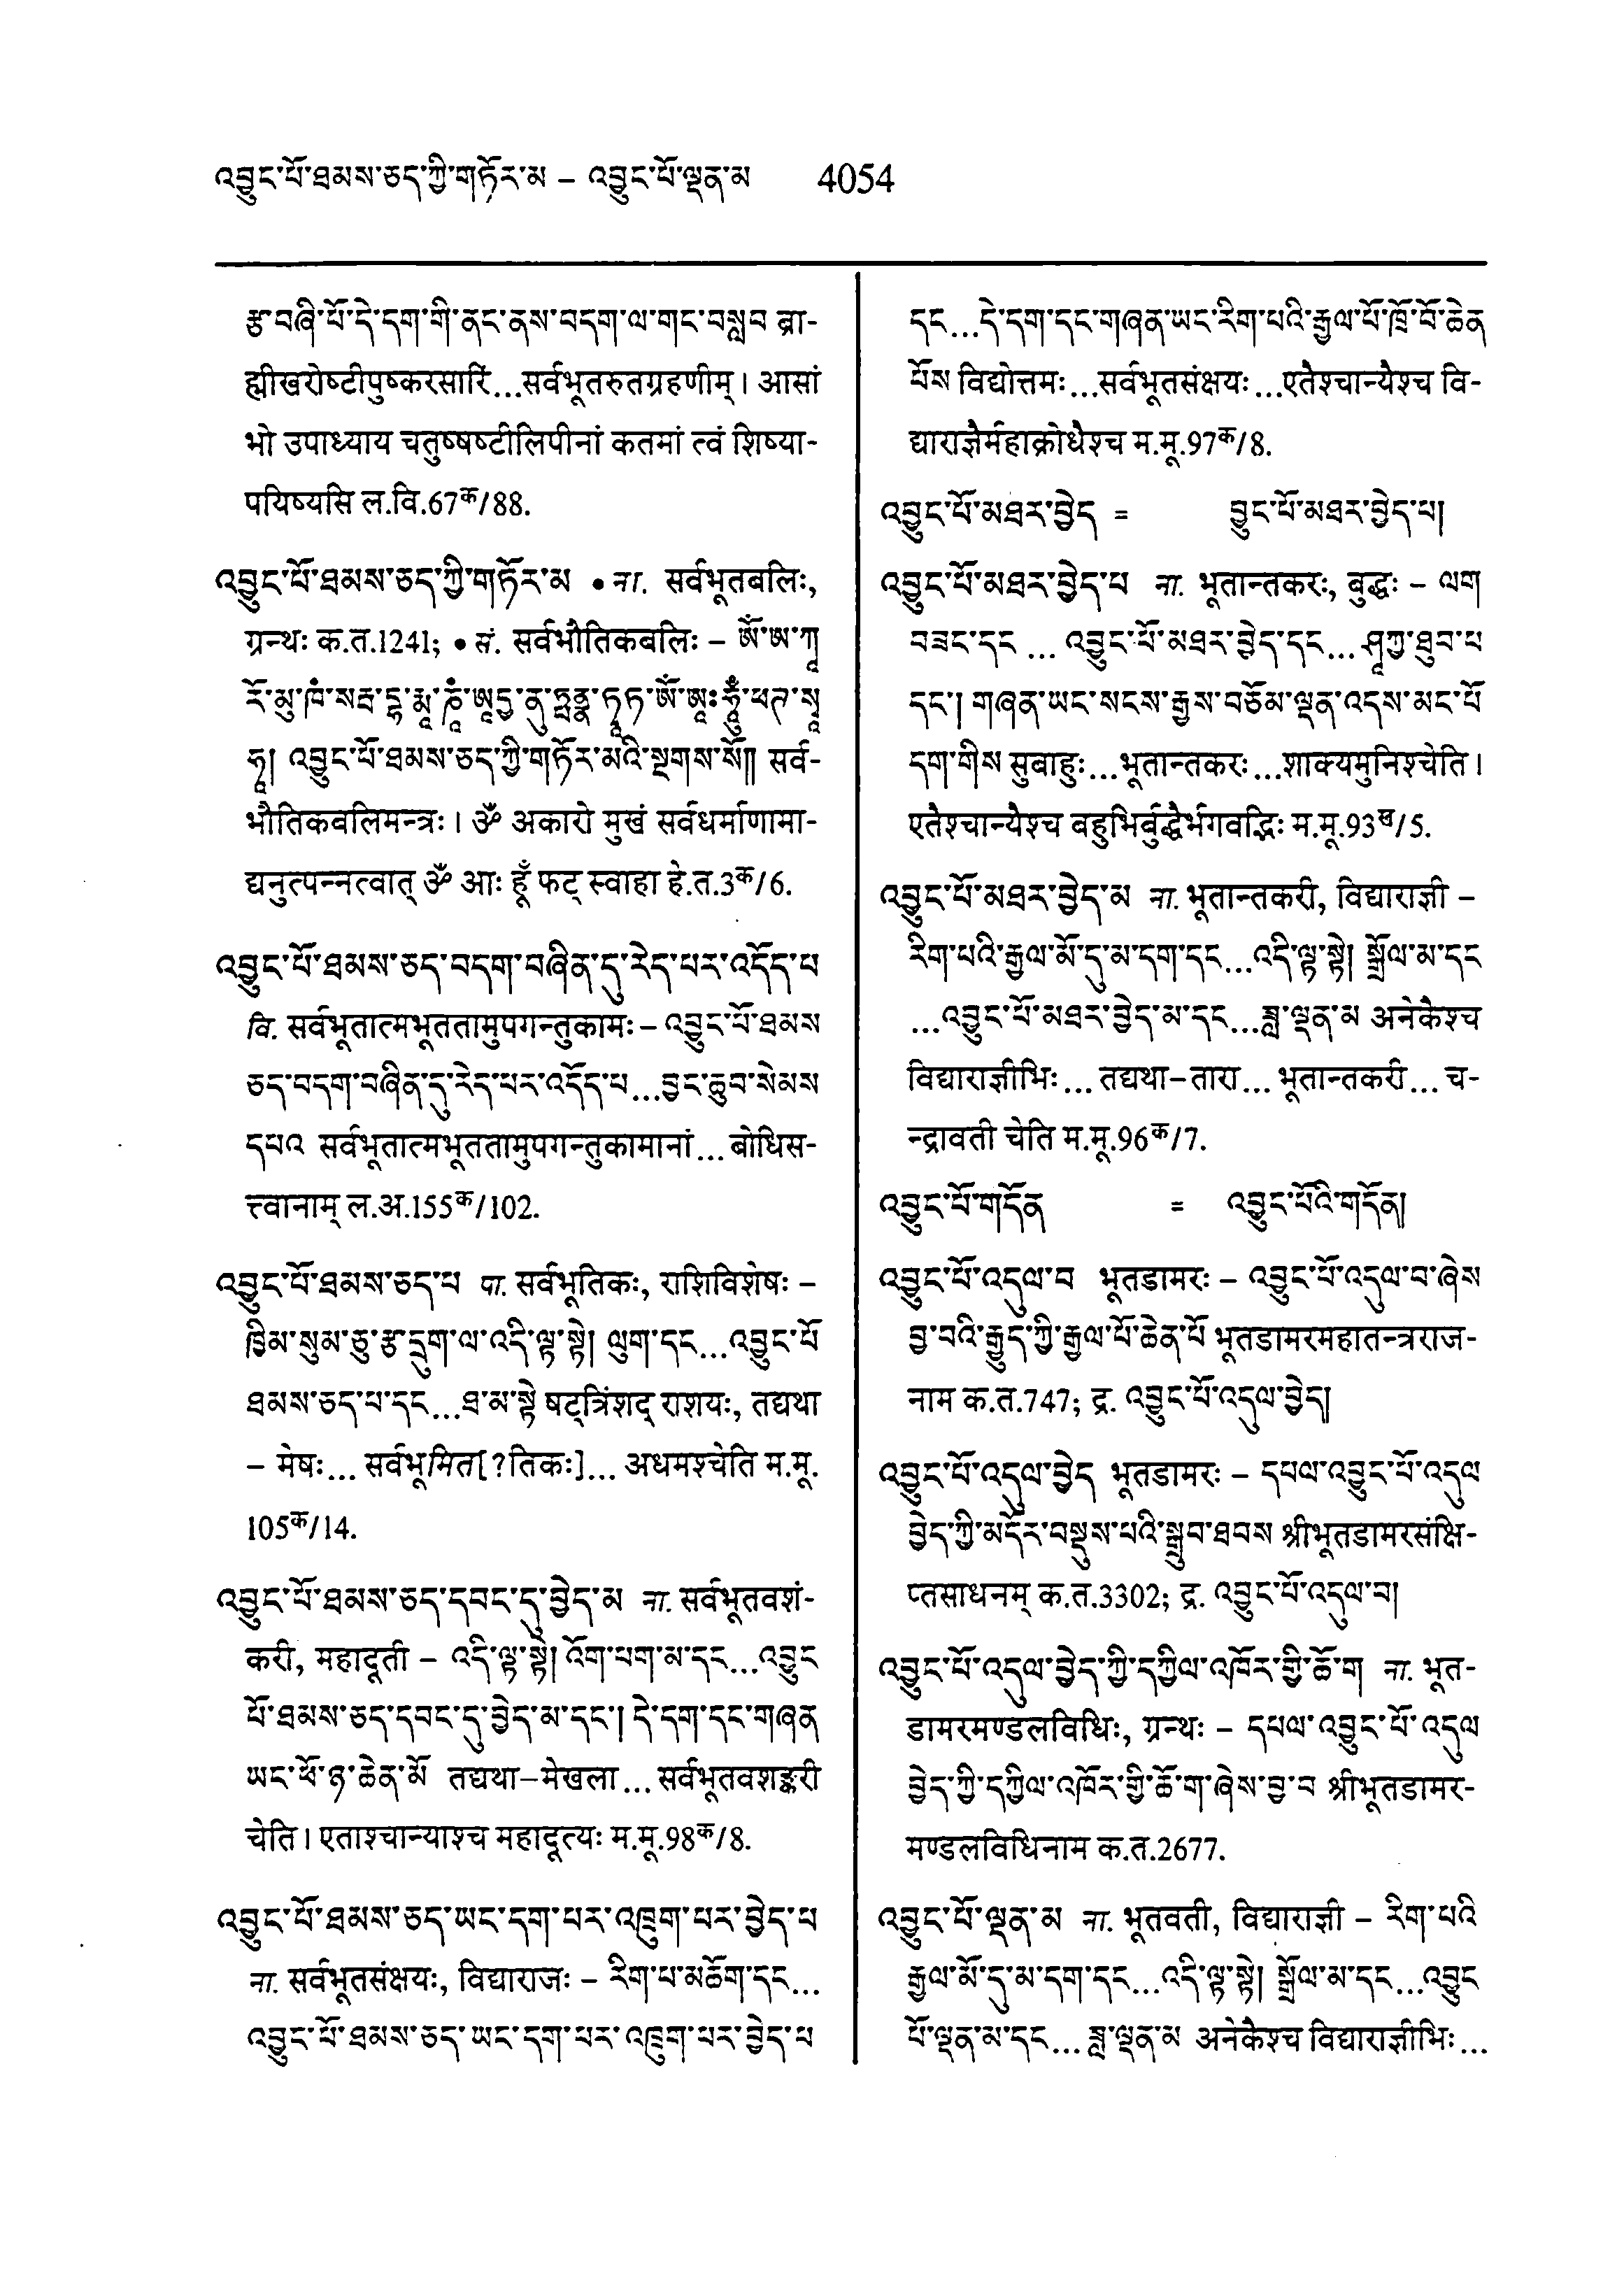 འབྱུང་པོ་ཐམས་ཅད་ཀྱི་གཏོར་མ – འབྱུང་པོ་ལྡན་མ 4054
རྩ་བཞི་པོ་དེ་དག་གི་ནང་ནས་བདག་ལ་གང་བསླབ ब्रा-
ह्मीखरोष्टीपुष्करसारिं...सर्वभूतरुतग्रहणीम्। आसां
भो उपाध्याय चतुष्षष्टीलिपीनां कतमां त्वं शिष्या-
पयिष्यसि ल.वि.67क/88.
འབྱུང་པོ་ཐམས་ཅད་ཀྱི་གཏོར་མ • ना. सर्वभूतबलिः,
ग्रन्थः क.त.1241; • सं. सर्वभौतिकबलिः – ཨོཾ་ཨ་ཀཱ
རོ་མུ་ཁཾ་སརྦ་
ཧཱ། འབྱུང་པོ་ཐམས་ཅད་ཀྱི་གཏོར་མའི་སྔགས་སོ།། सर्व-
भौतिकबलिमन्त्रः। ॐ अकारो मुखं सर्वधर्माणामा-
द्यनुत्पन्नत्वात् ॐ आः हूँ फट् स्वाहा हे.त.3क/6.
འབྱུང་པོ་ཐམས་ཅད་བདག་བཞིན་དུ་རེད་པར་འདོད་པ
वि. सर्वभूतात्मभूततामुपगन्तुकामः – འབྱུང་པོ་ཐམས
ཅད་བདག་བཞིན་དུ་རེད་པར་འདོད་པ...བྱང་ཆུབ་སེམས
དཔའ सर्वभूतात्मभूततामुपगन्तुकामानां... बोधिस-
त्त्वानाम् ल.अ.155क/102.
འབྱུང་པོ་ཐམས་ཅད་པ पा. सर्वभूतिकः, राशिविशेषः –
ཁྱིམ་སུམ་ཅུ་རྩ་དྲུག་ལ་འདི་ལྟ་སྟེ། ལུག་དང...འབྱུང་པོ
ཐམས་ཅད་པ་དང...ཐ་མ་སྟེ षट्त्रिंशद् राशयः, तद्यथा
– मेषः... सर्वभूमित[?तिकः]... अधमश्चेति म.मू.
105क/14.
འབྱུང་པོ་ཐམས་ཅད་དབང་དུ་བྱེད་མ ना. सर्वभूतवशं-
करी, महादूती – འདི་ལྟ་སྟེ། འོག་པག་མ་དང...འབྱུང
པོ་ཐམས་ཅད་དབང་དུ་བྱེད་མ་དང་། དེ་དག་དང་གཞན
ཡང་ཕོ་ཉ་ཆེན་མོ तद्यथा–मेखला... सर्वभूतवशङ्करी
चेति। एताश्चान्याश्च महादूत्यः म.मू.98क/8.
འབྱུང་པོ་ཐམས་ཅད་ཡང་དག་པར་འཁྲུག་པར་བྱེད་པ
ना. सर्वभूतसंक्षयः, विद्याराजः – རིག་པ་མཆོག་དང...
འབྱུང་པོ་ཐམས་ཅད་ཡང་དག་པར་འཁྲུག་པར་བྱེད་པ
དང...དེ་དག་དང་གཞན་ཡང་རིག་པའི་རྒྱལ་པོ་ཁྲོ་བོ་ཆེན
པོས विद्योत्तमः...सर्वभूतसंक्षयः...एतैश्चान्यैश्च वि-
द्याराज्ञैर्महाक्रोधैश्च म.मू.97क/8.
འབྱུང་པོ་མཐར་བྱེད = བྱུང་པོ་མཐར་བྱེད་པ།
འབྱུང་པོ་མཐར་བྱེད་པ ना. भूतान्तकरः, बुद्धः – ལག
བཟང་དང ... འབྱུང་པོ་མཐར་བྱེད་དང...ཤཱཀྱ་ཐུབ་པ
དང་། གཞན་ཡང་སངས་རྒྱས་བཅོམ་ལྡན་འདས་མང་པོ
དག་གིས सुबाहुः...भूतान्तकरः...शाक्यमुनिश्चेति।
एतैश्चान्यैश्च बहुभिर्बुद्धैर्भगवद्भिः म.मू.93ख/5.
འབྱུང་པོ་མཐར་བྱེད་མ ना. भूतान्तकरी, विद्याराज्ञी –
རིག་པའི་རྒྱལ་མོ་དུ་མ་དག་དང...འདི་ལྟ་སྟེ། སྒྲོལ་མ་དང
...འབྱུང་པོ་མཐར་བྱེད་མ་དང...ཟླ་ལྡན་མ अनेकैश्च
विद्याराज्ञीभिः... तद्यथा–तारा... भूतान्तकरी... च-
न्द्रावती चेति म.मू.96क/7.
འབྱུང་པོ་གདོན = འབྱུང་པོའི་གདོན།
འབྱུང་པོ་འདུལ་བ भूतडामरः – འབྱུང་པོ་འདུལ་བ་ཞེས
བྱ་བའི་རྒྱུད་ཀྱི་རྒྱལ་པོ་ཆེན་པོ भूतडामरमहातन्त्रराज-
नाम क.त.747; द्र. འབྱུང་པོ་འདུལ་བྱེད།
འབྱུང་པོ་འདུལ་བྱེད भूतडामरः – དཔལ་འབྱུང་པོ་འདུལ
བྱེད་ཀྱི་མདོར་བསྡུས་པའི་སྒྲུབ་ཐབས श्रीभूतडामरसंक्षि-
प्तसाधनम् क.त.3302; द्र. འབྱུང་པོ་འདུལ་བ།
འབྱུང་པོ་འདུལ་བྱེད་ཀྱི་དཀྱིལ་འཁོར་གྱི་ཆོ་ག ना. भूत-
डामरमण्डलविधिः, ग्रन्थः – དཔལ་འབྱུང་པོ་འདུལ
བྱེད་ཀྱི་དཀྱིལ་འཁོར་གྱི་ཆོ་ག་ཞེས་བྱ་བ श्रीभूतडामर-
मण्डलविधिनाम क.त.2677.
འབྱུང་པོ་ལྡན་མ ना. भूतवती, विद्याराज्ञी – རིག་པའི
རྒྱལ་མོ་དུ་མ་དག་དང...འདི་ལྟ་སྟེ། སྒྲོལ་མ་དང...འབྱུང
པོ་ལྡན་མ་དང... ཟླ་ལྡན་མ अनेकैश्च विद्याराज्ञीभिः...